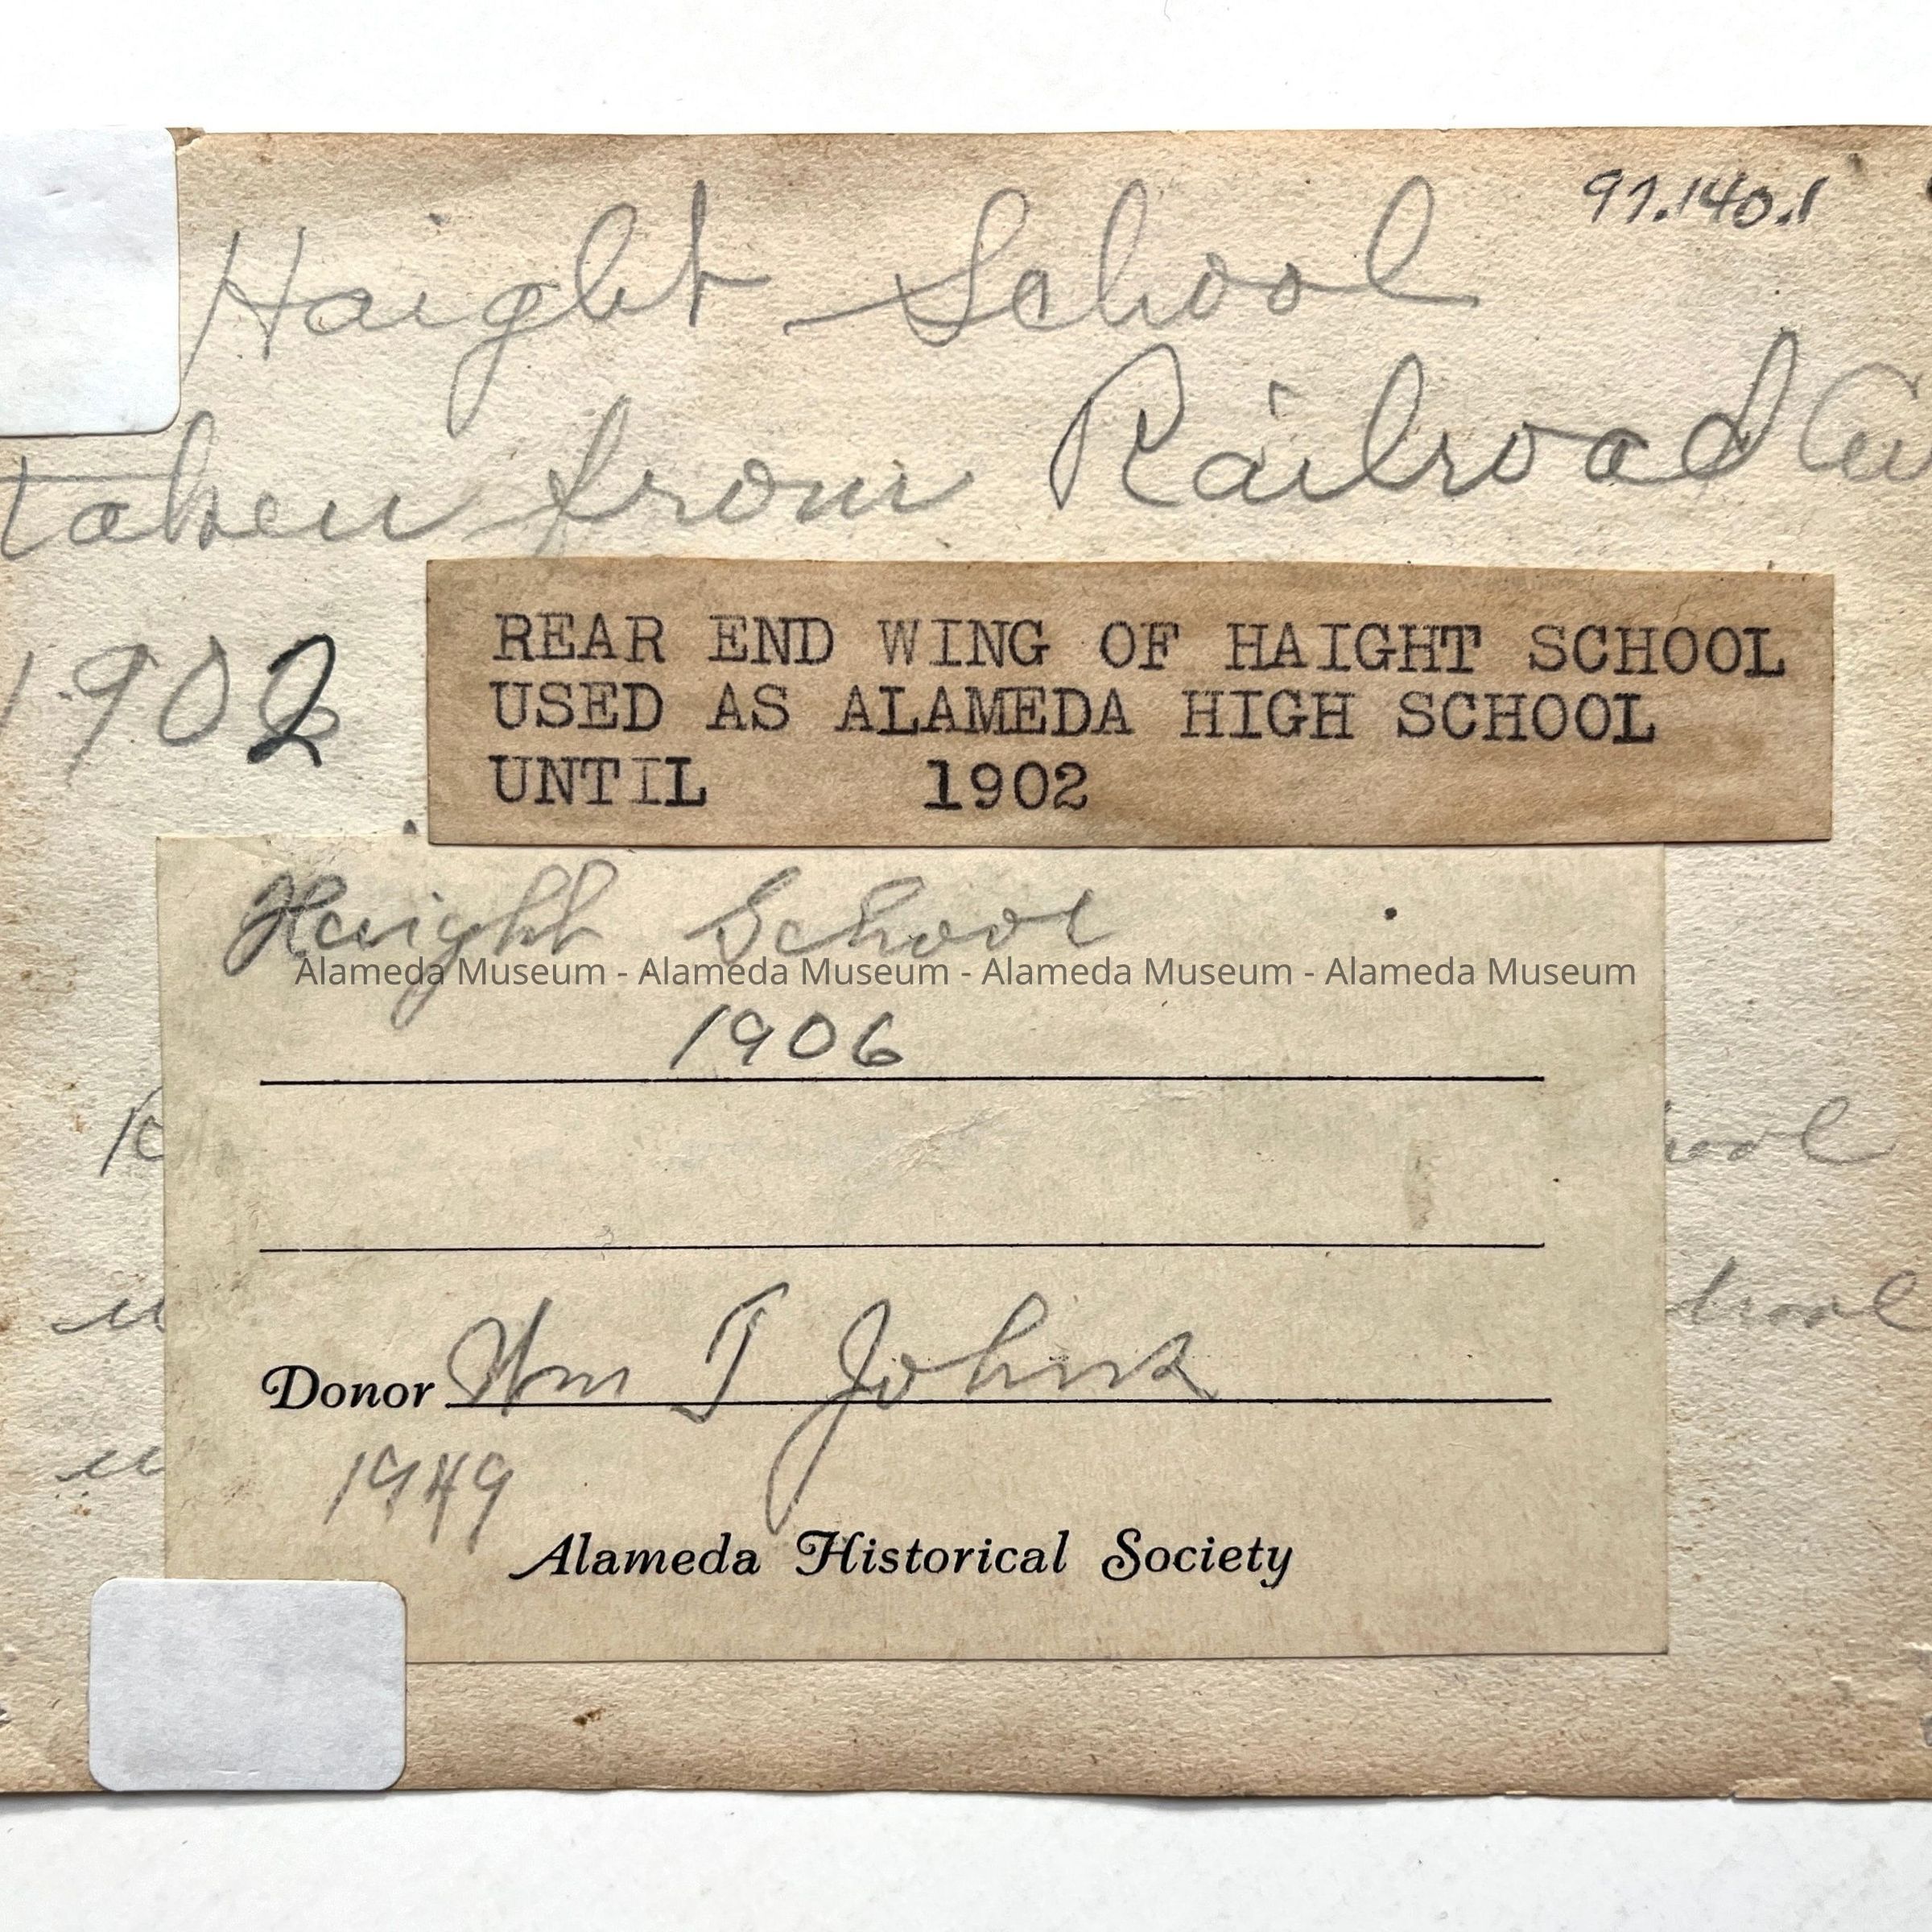 91.140.1
Haight School
taken from Railroad Av
1902
REAR END WING OF HAIGHT SCHOOL
USED AS ALAMEDA HIGH SCHOOL
UNTIL 1902
Haight School
Alameda Museum - Alameda Museum - Alameda Museum - Alameda Museum
1906
Donor Wm T Johns
1949
Alameda Historical Society